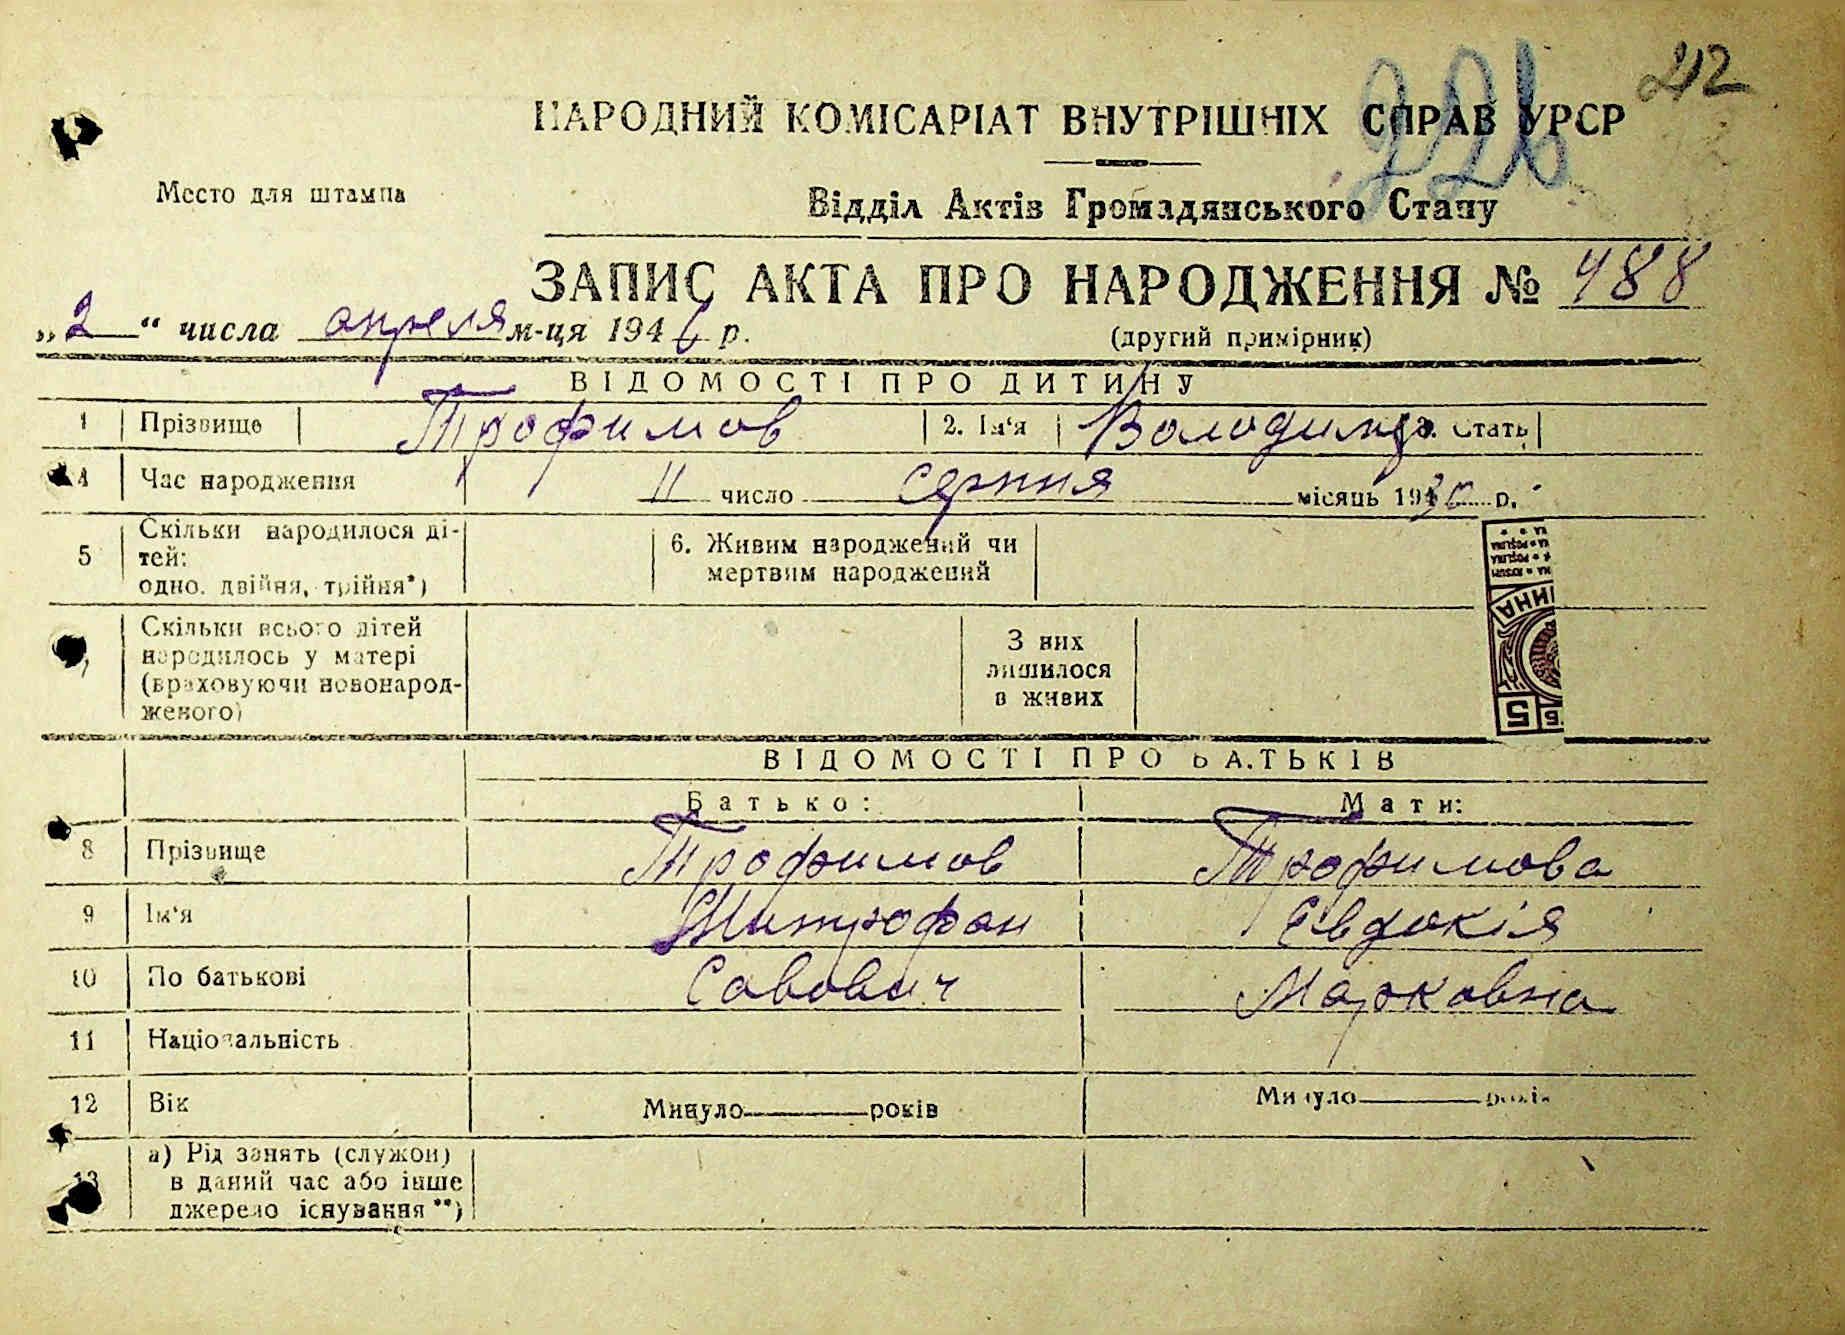 212
226
НАРОДНИЙ КОМІСАРІАТ ВНУТРІШНІХ СПРАВ УРСР
Место для штампа
Відділ Актів Громадянського Стану
ЗАПИС АКТА ПРО НАРОДЖЕННЯ № 488
„2“ числа апреля м-ця 1946 р.
(другий примірник)
ВІДОМОСТІ ПРО ДИТИНУ
1 Прізвище Трофимов 2. Ім'я Володимир 3. Стать
4 Час народження 11 число серпня місяць 1930 р.
5 Скільки народилося ді-
тей:
одно, двійня, трійня*)
6. Живим народжений чи
мертвим народжений
7 Скільки всього дітей
народилось у матері
(враховуючи новонарод-
женого)
З них
лишилося
в живих
5
ВІДОМОСТІ ПРО БАТЬКІВ
Батько: Мати:
8 Прізвище Трофимов Трофимова
9 Ім'я Митрофан Євдокія
10 По батькові Савович Марковна
11 Національність
12 Вік Минуло років Минуло років
13 а) Рід занять (служби)
в даний час або інше
джерело існування **)